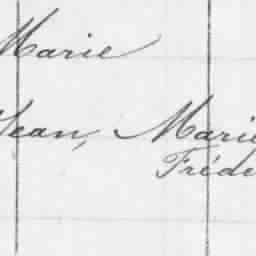 Marie
Jean, Marie
Fréde